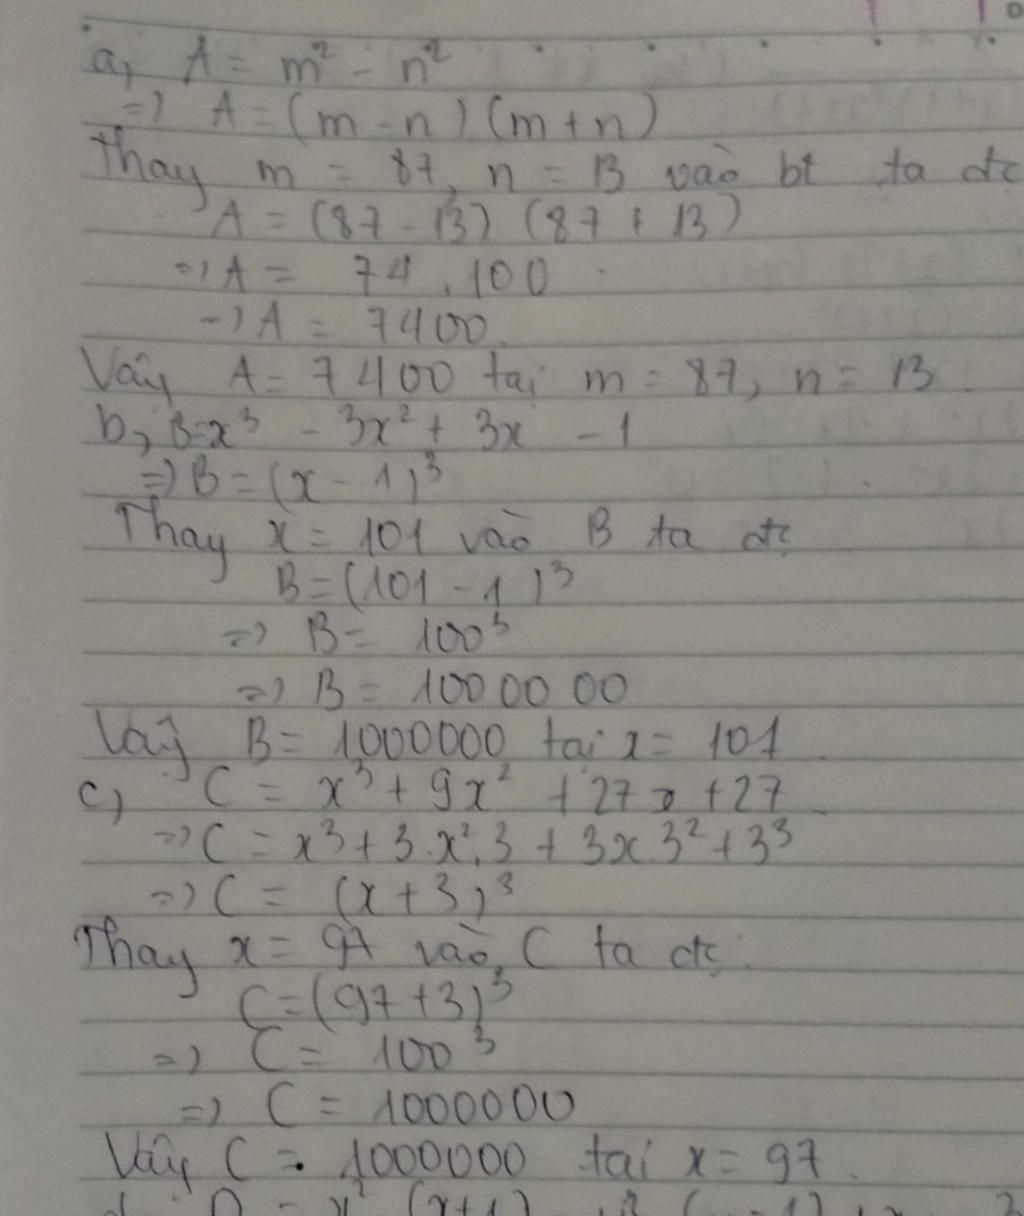 a, A = m² - n²
=) A = (m - n) (m + n)
Thay m = 87, n = 13 vào bt ta đc
A = (87 - 13) (87 + 13)
=) A = 74 . 100
=) A = 7400.
Vây A = 7400 tại m = 87, n = 13.
b, B=x³ - 3x² + 3x - 1
=) B = (x - 1)³
Thay x = 101 vào B ta đc
B = (101 - 1)³
=) B = 100³
=) B = 1000000
Vây B = 1000000 tai x = 101.
c, C = x³ + 9x² + 27x + 27
=) C = x³ + 3.x².3 + 3x3² + 3³
=) C = (x + 3)³
Thay x = 97 vào C ta đc
C = (97 + 3)³
=) C = 100³
=) C = 1000000
Vây C = 1000000 tai x = 97.
D = x² (x+1)